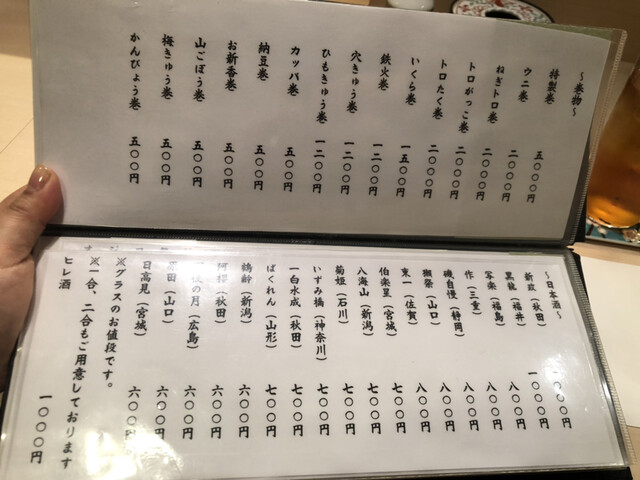 ～巻物～
特製巻 五〇〇〇円
ウニ巻 二〇〇〇円
ねぎトロ巻 二〇〇〇円
トロがっこ巻 二〇〇〇円
トロたく巻 二〇〇〇円
いくら巻 一五〇〇円
鉄火巻 一二〇〇円
穴きゅう巻 一二〇〇円
ひもきゅう巻 一二〇〇円
カッパ巻 五〇〇円
納豆巻 五〇〇円
お新香巻 五〇〇円
山ごぼう巻 五〇〇円
梅きゅう巻 五〇〇円
かんぴょう巻 五〇〇円
～日本酒～
新政（秋田） 一〇〇〇円
黒龍（福井） 一〇〇〇円
写楽（福島） 八〇〇円
作（三重） 八〇〇円
磯自慢（静岡） 八〇〇円
獺祭（山口） 八〇〇円
東一（佐賀） 八〇〇円
伯楽星（宮城） 七〇〇円
八海山（新潟） 七〇〇円
菊姫（石川） 七〇〇円
いずみ橋（神奈川） 七〇〇円
一白水成（秋田） 七〇〇円
ばくれん（山形） 七〇〇円
鶴齢（新潟） 六〇〇円
阿櫻（秋田） 六〇〇円
の月（広島） 六〇〇円
（山口） 六〇〇円
日高見（宮城） 六〇〇円
※グラスのお値段です。
※一合、二合もご用意しております
ヒレ酒 一〇〇〇円